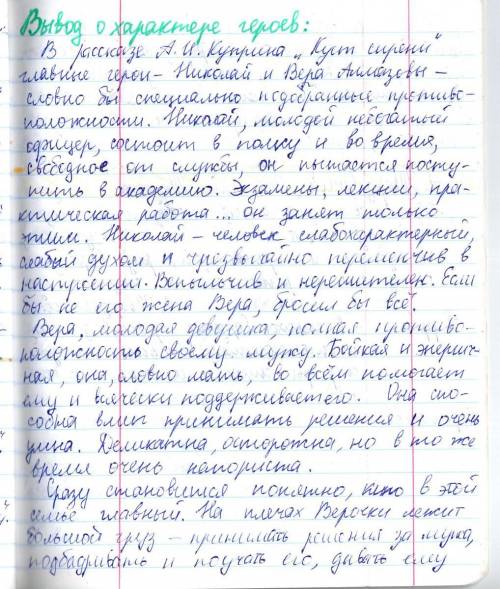 Вывод о характере героев:
В рассказе А. И. Куприна „Куст сирени"
главные герои - Николай и Вера Алмазовы -
словно бы специально подобранные противо-
положности. Николай, молодой небогатый
офицер, состоит в полку и во время,
свободное от службы, он пытается посту-
пить в академию. Экзамены, лекции, пра-
ктическая работа... он занят только
этим. Николай - человек слабохарактерный,
слабый духом и чрезвычайно переменчив в
настроении. Вспыльчив и нерешителен. Если
бы не его жена Вера, бросил бы всё.
Вера, молодая девушка, полная противо-
положность своему мужу. Бойкая и энергич-
ная, она, словно мать, во всём помогает
ему и всячески поддерживает его. Она спо-
собна влиг принимать решения и очень
умна. Деликатна, осторожна, но в то же
время очень напориста.
Сразу становится понятно, кто в этой
семье главный. На плечах Верочки лежит
большой груз - принимать решения за мужа,
подбадривать и поучать его, давать ему